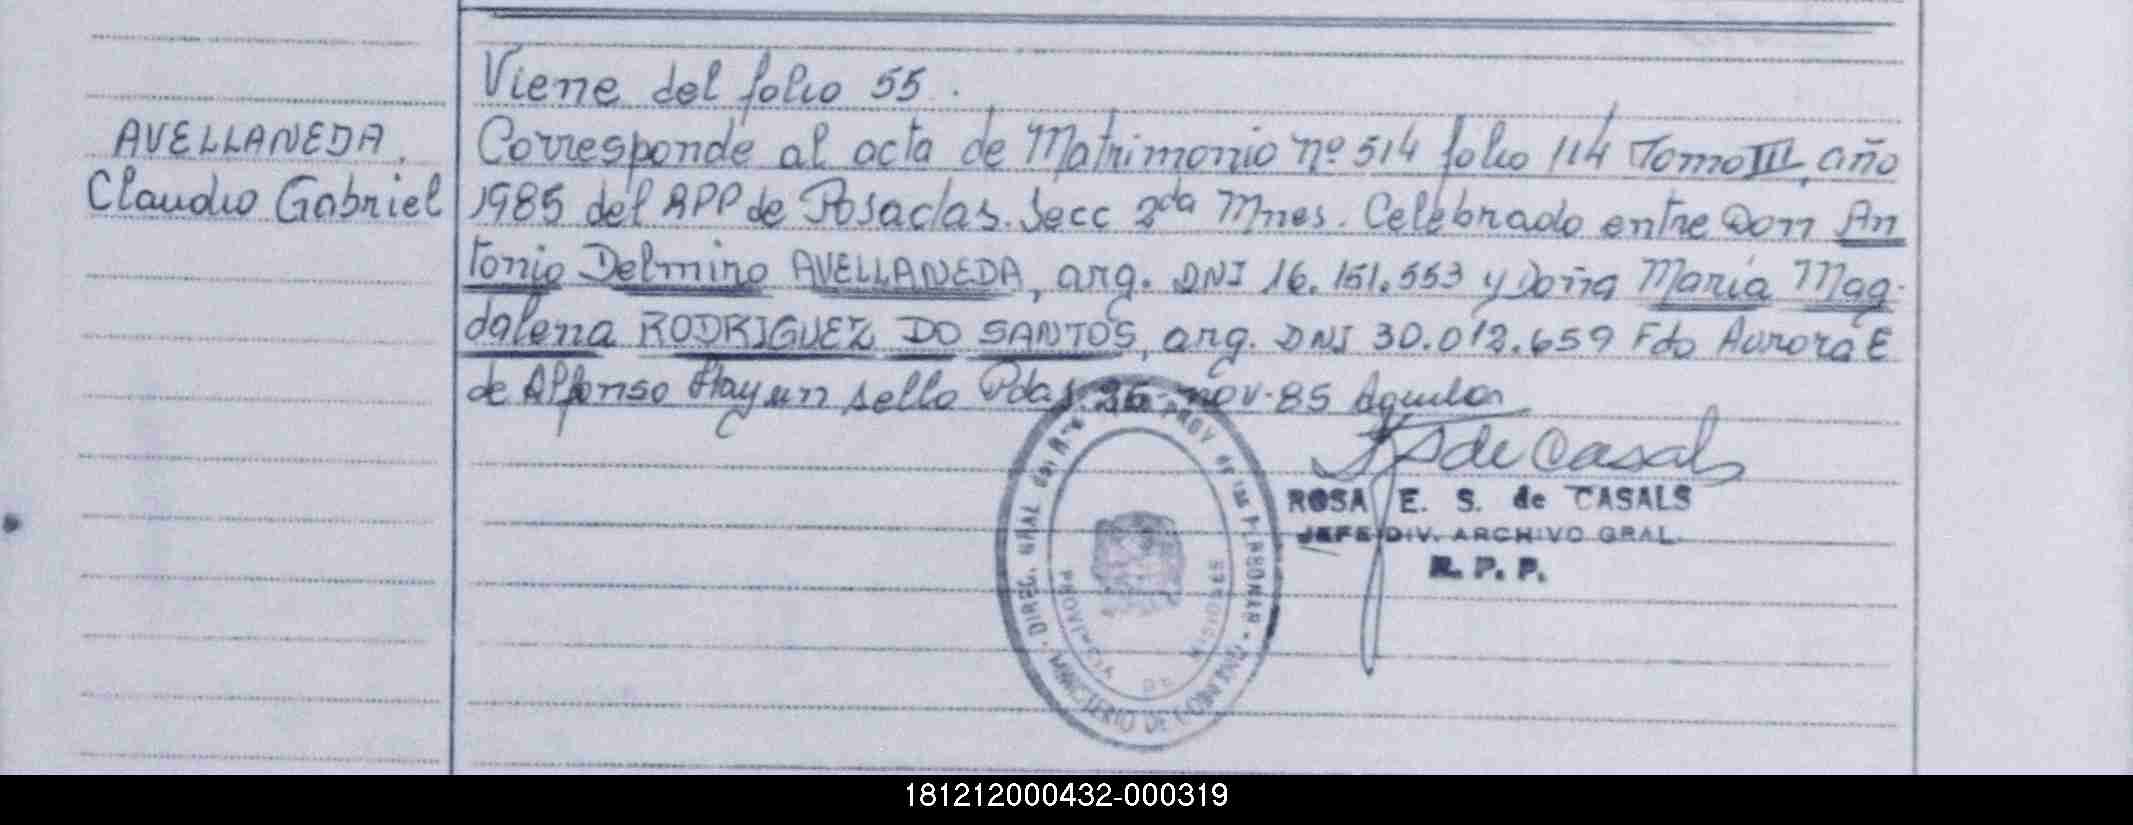 Viene del folio 55.
AVELLANEDA,
Claudio Gabriel
Corresponde al acta de Matrimonio nº 514 folio 114 Tomo III, año
1985 del RPP de Posadas. Secc 2da Mnes. Celebrado entre Don An
tonio Delmiro AVELLANEDA, arg. DNI 16.151.553 y Doña María Mag-
dalena RODRIGUEZ DO SANTOS, arg. DNI 30.012.659 Fdo Aurora E
de Alfonso Hay un sello Pdas 26 nov-85 Aguilar
S de Casals
ROSA E. S. de CASALS
JEFE DIV. ARCHIVO GRAL.
R. P. P.
DIREC. GRAL del PROV de las PERSONAS
MINISTERIO DE GOBIERNO
PROVINCIA DE MISIONES
181212000432-000319